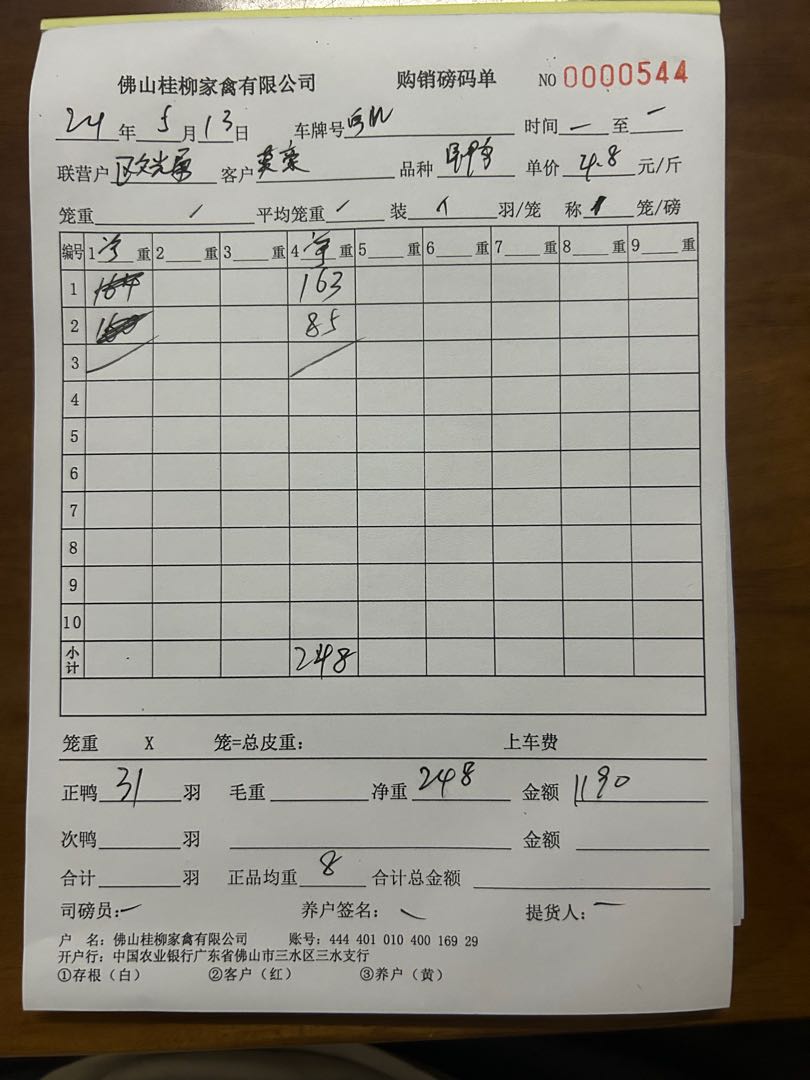 佛山桂柳家禽有限公司 购销磅码单 NO 0000544
24年5月13日 车牌号 时间 — 至 —
联营户 欧光 客户 品种 单价 4.8 元/斤
笼重 / 平均笼重 / 装 羽/笼 称 笼/磅
编号 1 重 2 重 3 重 4 重 5 重 6 重 7 重 8 重 9 重
1 163
2 85
3
4
5
6
7
8
9
10
小计 248
笼重 X 笼=总皮重: 上车费
正鸭 31 羽 毛重 净重 248 金额 1190
次鸭 羽 金额
合计 羽 正品均重 8 合计总金额
司磅员: 养户签名: 提货人:
户 名: 佛山桂柳家禽有限公司 账号: 444 401 010 400 169 29
开户行: 中国农业银行广东省佛山市三水区三水支行
①存根(白) ②客户(红) ③养户(黄)